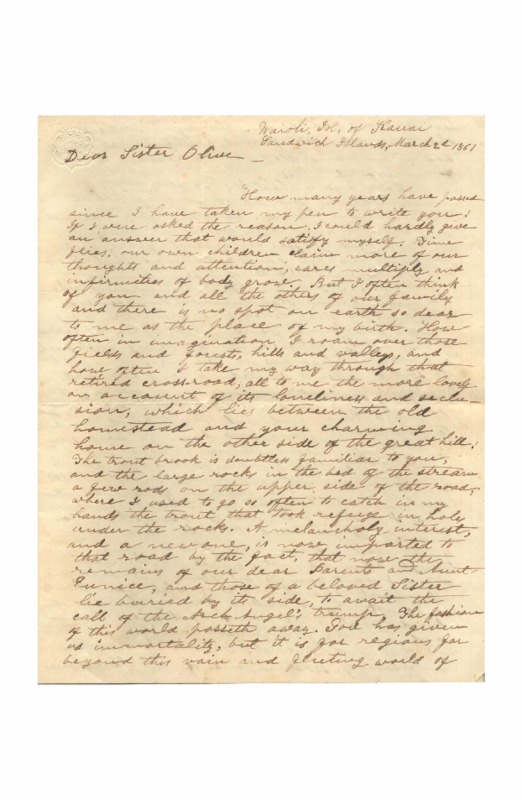 Waioli, Isl. of Kauai
Sandwich Islands, March 2d 1861
Dear Sister Olive —
How many years have passed
since I have taken my pen to write you!
If I were asked the reason, I could hardly give
an answer that would satisfy myself. Time
flies; our own children claim more of our
thoughts and attention, cares multiply and
infirmities of body grow. But I often think
of you and all the others of our family
and there is no spot on earth so dear
to me as the place of my birth. How
often in imagination, I roam over those
fields and forests, hills and valleys, and
how often I take my way through that
retired crossroad, all to me the more lovely
on account of its loneliness and seclu-
sion, which lies between the old
homestead and your charming
home on the other side of the great hill!
The trout brook is doubtless familiar to you,
and the large rocks in the bed of the stream
a few rods on the upper side of the road,
where I used to go so often to catch in my
hands the trout that took refuge in holes
under the rocks. A melancholy interest,
and a new one, is now imparted to
that road by the fact, that now the
remains of our dear Parents and Aunt
Eunice, and those of a beloved Sister
lie buried by its side, to await the
call of the Arch Angel's trump. The fashion
of this world passeth away. God has given
us immortality, but it is for regions far
beyond this vain and fleeting world of